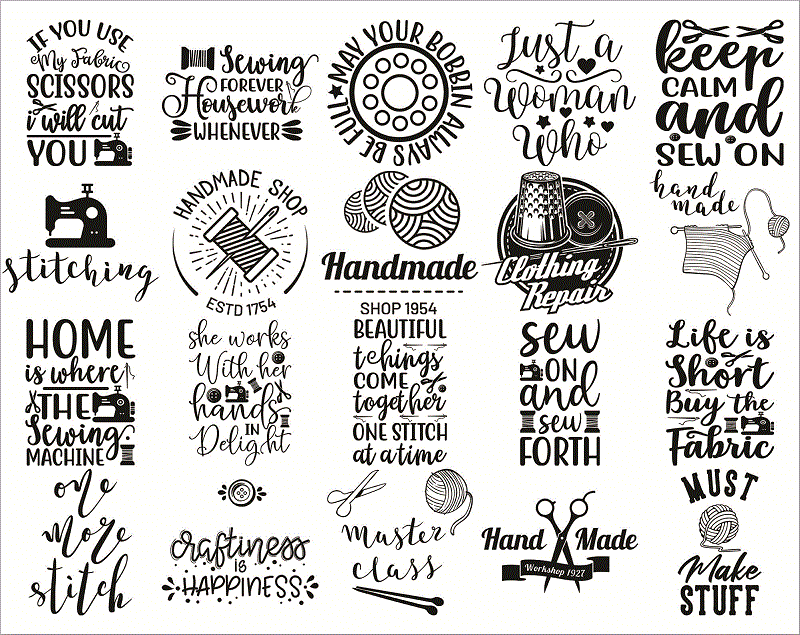 IF YOU USE
My Fabric
SCISSORS
i will cut
YOU
Sewing
FOREVER
Housework
WHENEVER
MAY YOUR BOBBIN ALWAYS BE FULL
Just a
Woman
Who
keep
CALM
and
SEW ON
stitching
HANDMADE SHOP
ESTD 1754
Handmade
SHOP 1954
Clothing
Repair
hand
made
HOME
is where
THE
Sewing
MACHINE
she works
With her
hands
IN
Delight
BEAUTIFUL
tchings
COME
together
ONE STITCH
at a time
sew
ON
and
sew
FORTH
Life is
Short
Buy the
Fabric
one
more
stitch
craftiness
IS
HAPPINESS
master
class
Hand Made
Workshop 1927
MUST
Make
STUFF